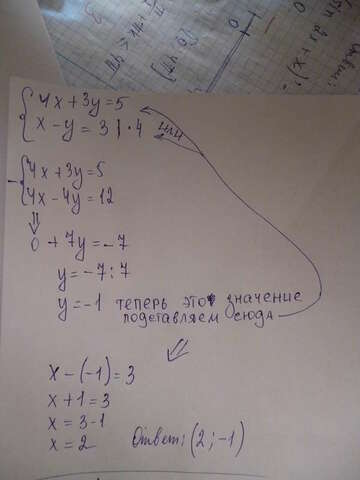 4x+3y=5
x-y=3 |·4 или
4x+3y=5
4x-4y=12
0+7y=-7
y=-7:7
y=-1 теперь это значение
подставляем сюда
x-(-1)=3
x+1=3
x=3-1
x=2 Ответ: (2;-1)